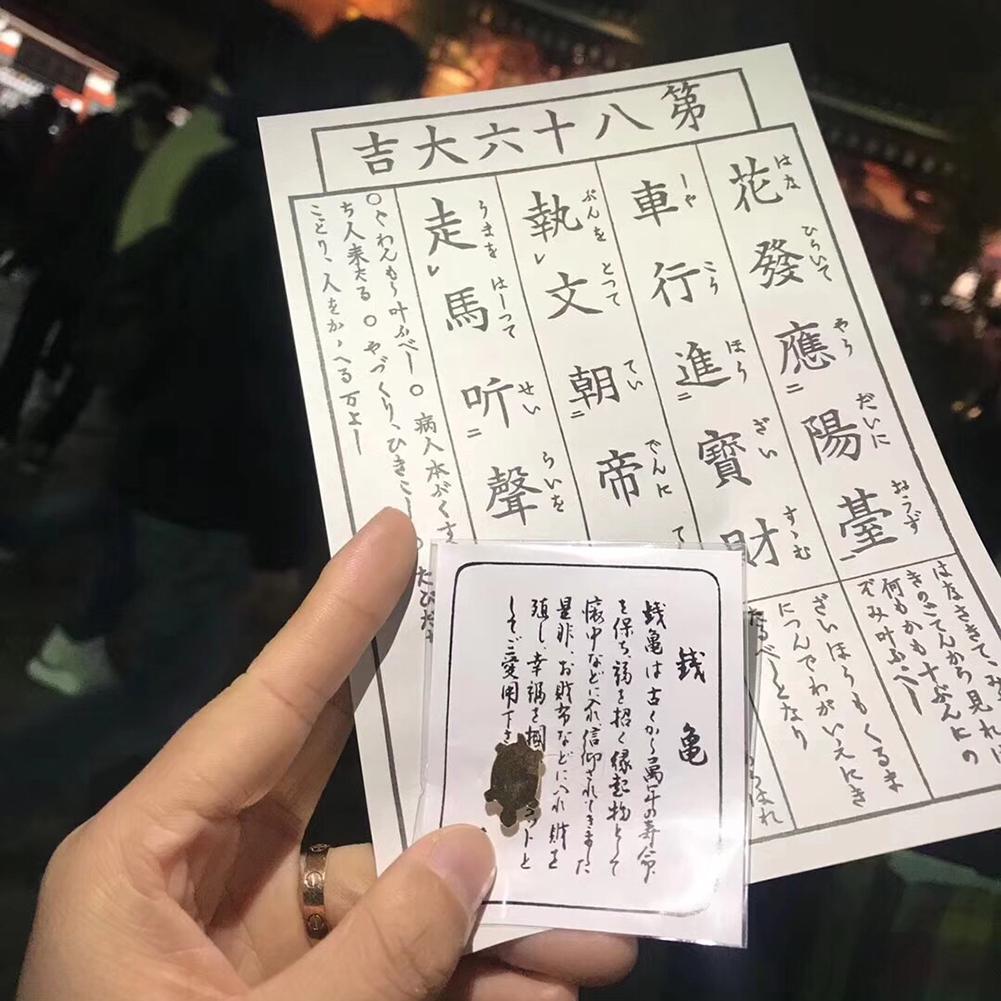 第八十六大吉
花發應陽臺
はな ひらいて やう だいに おうず
車行進寶財
しや こう ほう ざい すゝむ
執文朝帝
ぶんを とつて てい でんに
走馬听聲
うまを はしつて せい らいを
はなさきて、み
きのごてんから見れば
何もかも十ぶんにの
ぞみ叶ふべし
ざいほうもくるま
につんでわがいえにき
たるべしとなり
○ぐわんもう叶ふべし○病人本ぶくす
ち人来たる○やづくり、ひきこし○たびだ
ことり、人をかゝへる万よし
銭亀
銭亀は古くから萬年の寿命
を保ち、福を招く縁起物として
懐中などに入れ、信仰されてきました
是非、お財布などに入れ財を
殖し、幸福を掴 コットと
してご愛用下さ